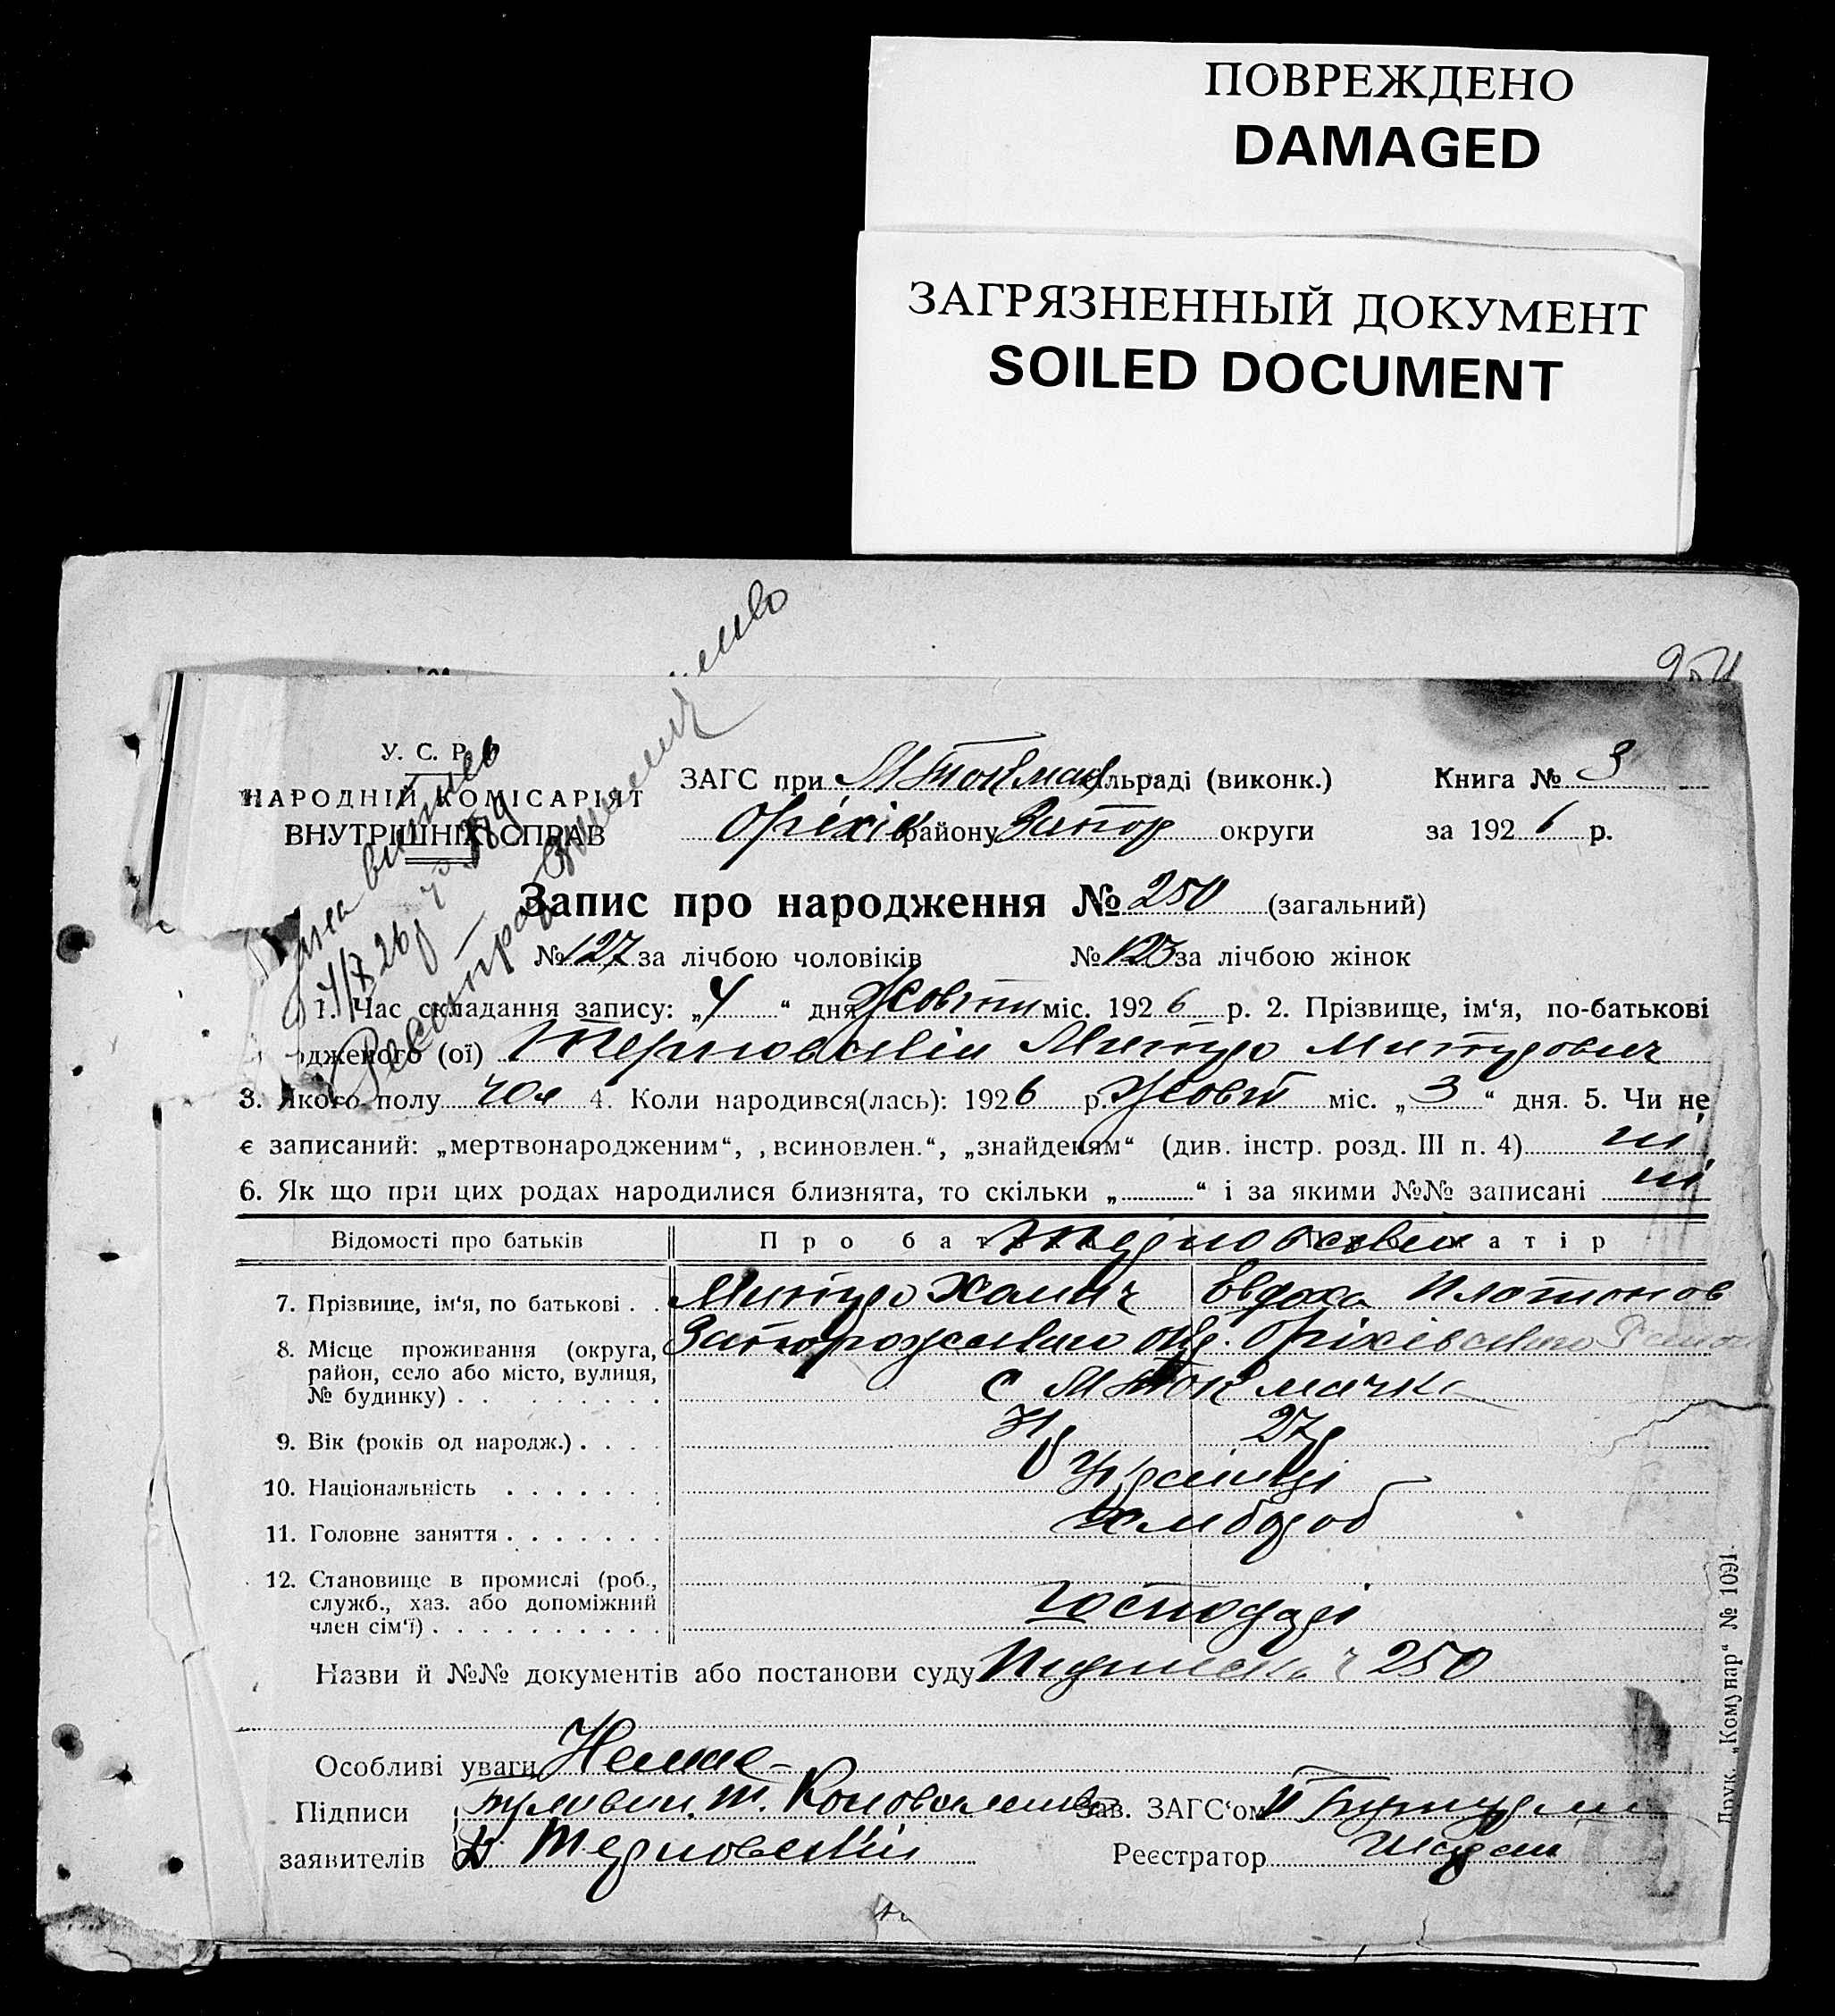 ПОВРЕЖДЕНО
DAMAGED
ЗАГРЯЗНЕННЫЙ ДОКУМЕНТ
SOILED DOCUMENT
У. С. Р. Р.
НАРОДНІЙ КОМІСАРІЯТ
ВНУТРІШНІХ СПРАВ
ЗАГС при М Токмац сільраді (виконк.) Книга № 3
Оріхів району Запор округи за 1926 р.
Запис про народження № 250 (загальний)
№ 127 за лічбою чоловіків № 123 за лічбою жінок
1. Час складання запису: „4“ дня Жовтн міс. 1926 р. 2. Прізвище, ім‘я, по-батькові
дженого (ої) Терновский Митро Митрович
3. Якого полу чол 4. Коли народився(лась): 1926 р. Жовт міс. „3“ дня. 5. Чи не
є записаний: „мертвонародженим“, „всиновлен.“, „знайденям“ (див. інстр. розд. III п. 4) ні
6. Як що при цих родах народилися близнята, то скільки „ “ і за якими №№ записані ні
Відомості про батьків Про батька Терновськи матір
7. Прізвище, ім‘я, по батькові . . Митро Хомич Евдоха Платонов
8. Місце проживання (округа, район, село або місто, вулиця, № будинку) . Запорожського окр. Оріхівського Район
с М Токмачка
9. Вік (років од народж.) . . . . 27р
10. Національність . . . . . . . Українці
11. Головне заняття . . . . . . . Хлібороб
12. Становище в промислі (роб., служб., хаз. або допоміжний член сім‘ї) . . . Господарі
Назви й №№ документів або постанови суду 250
Особливі уваги Немає
Підписи Коноваленко Зав. ЗАГС‘ом
заявителів Терновский Реєстратор
Друк. „Комунар“ № 1091.